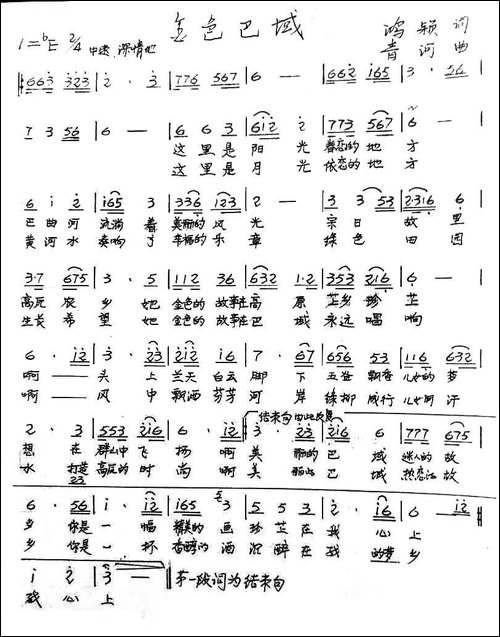 金色巴域
1=♭E 2/4 中速 深情地
鸿颖 词
青河 曲
663 323 | 2 · 3 | 776 567 | 6 — | 662 165 | 3 · 56 |
7 3 56 | 6 — | 6 6 3 | 612 2 | 773 567 | 6 — |
这里是阳光眷恋的地方
这里是月光依恋的地方
6 1 2 | 165 3 | 336 123 | 2 — | 3 3 53 | 2·316 6 |
巴曲河流淌着美丽的风光 宗日故里
黄河水奏响了幸福的乐章 绿色田园
3·7 675 | 3 · 5 | 112 36 | 632 1·2 | 353 216 | 6 — |
高瓦农乡她金色的故事在高原芝乡珍芝
生长希望她金色的故事在巴域永远唱响
6 · 12 | 3 · 23 | 212 16 | 7 · 67 | 656 53 | 116 632 |
啊——头上兰天白云脚下五谷飘香儿女的梦
啊——风中飘洒芬芳河岸绿柳成行儿女的汗
结束句由此反复
2 · 3 | 553 216 | 6 · 12 | 3 · 23 | 216 6 | 777 675 |
想在群山中飞扬啊美丽的巴域迷人的故
水打造高瓦的时尚啊美丽的巴域热恋的故
23
6 · 56 | 1 · 12 | 165 3 | 5 5 3 | 2 · 16 | 6 — 12 |
乡你是一幅精美的画珍芝在我心上
乡你是一杯香醇的酒沉醉在我的梦乡
1 2 | 3 — ‖ 第一段词为结束句
我心上